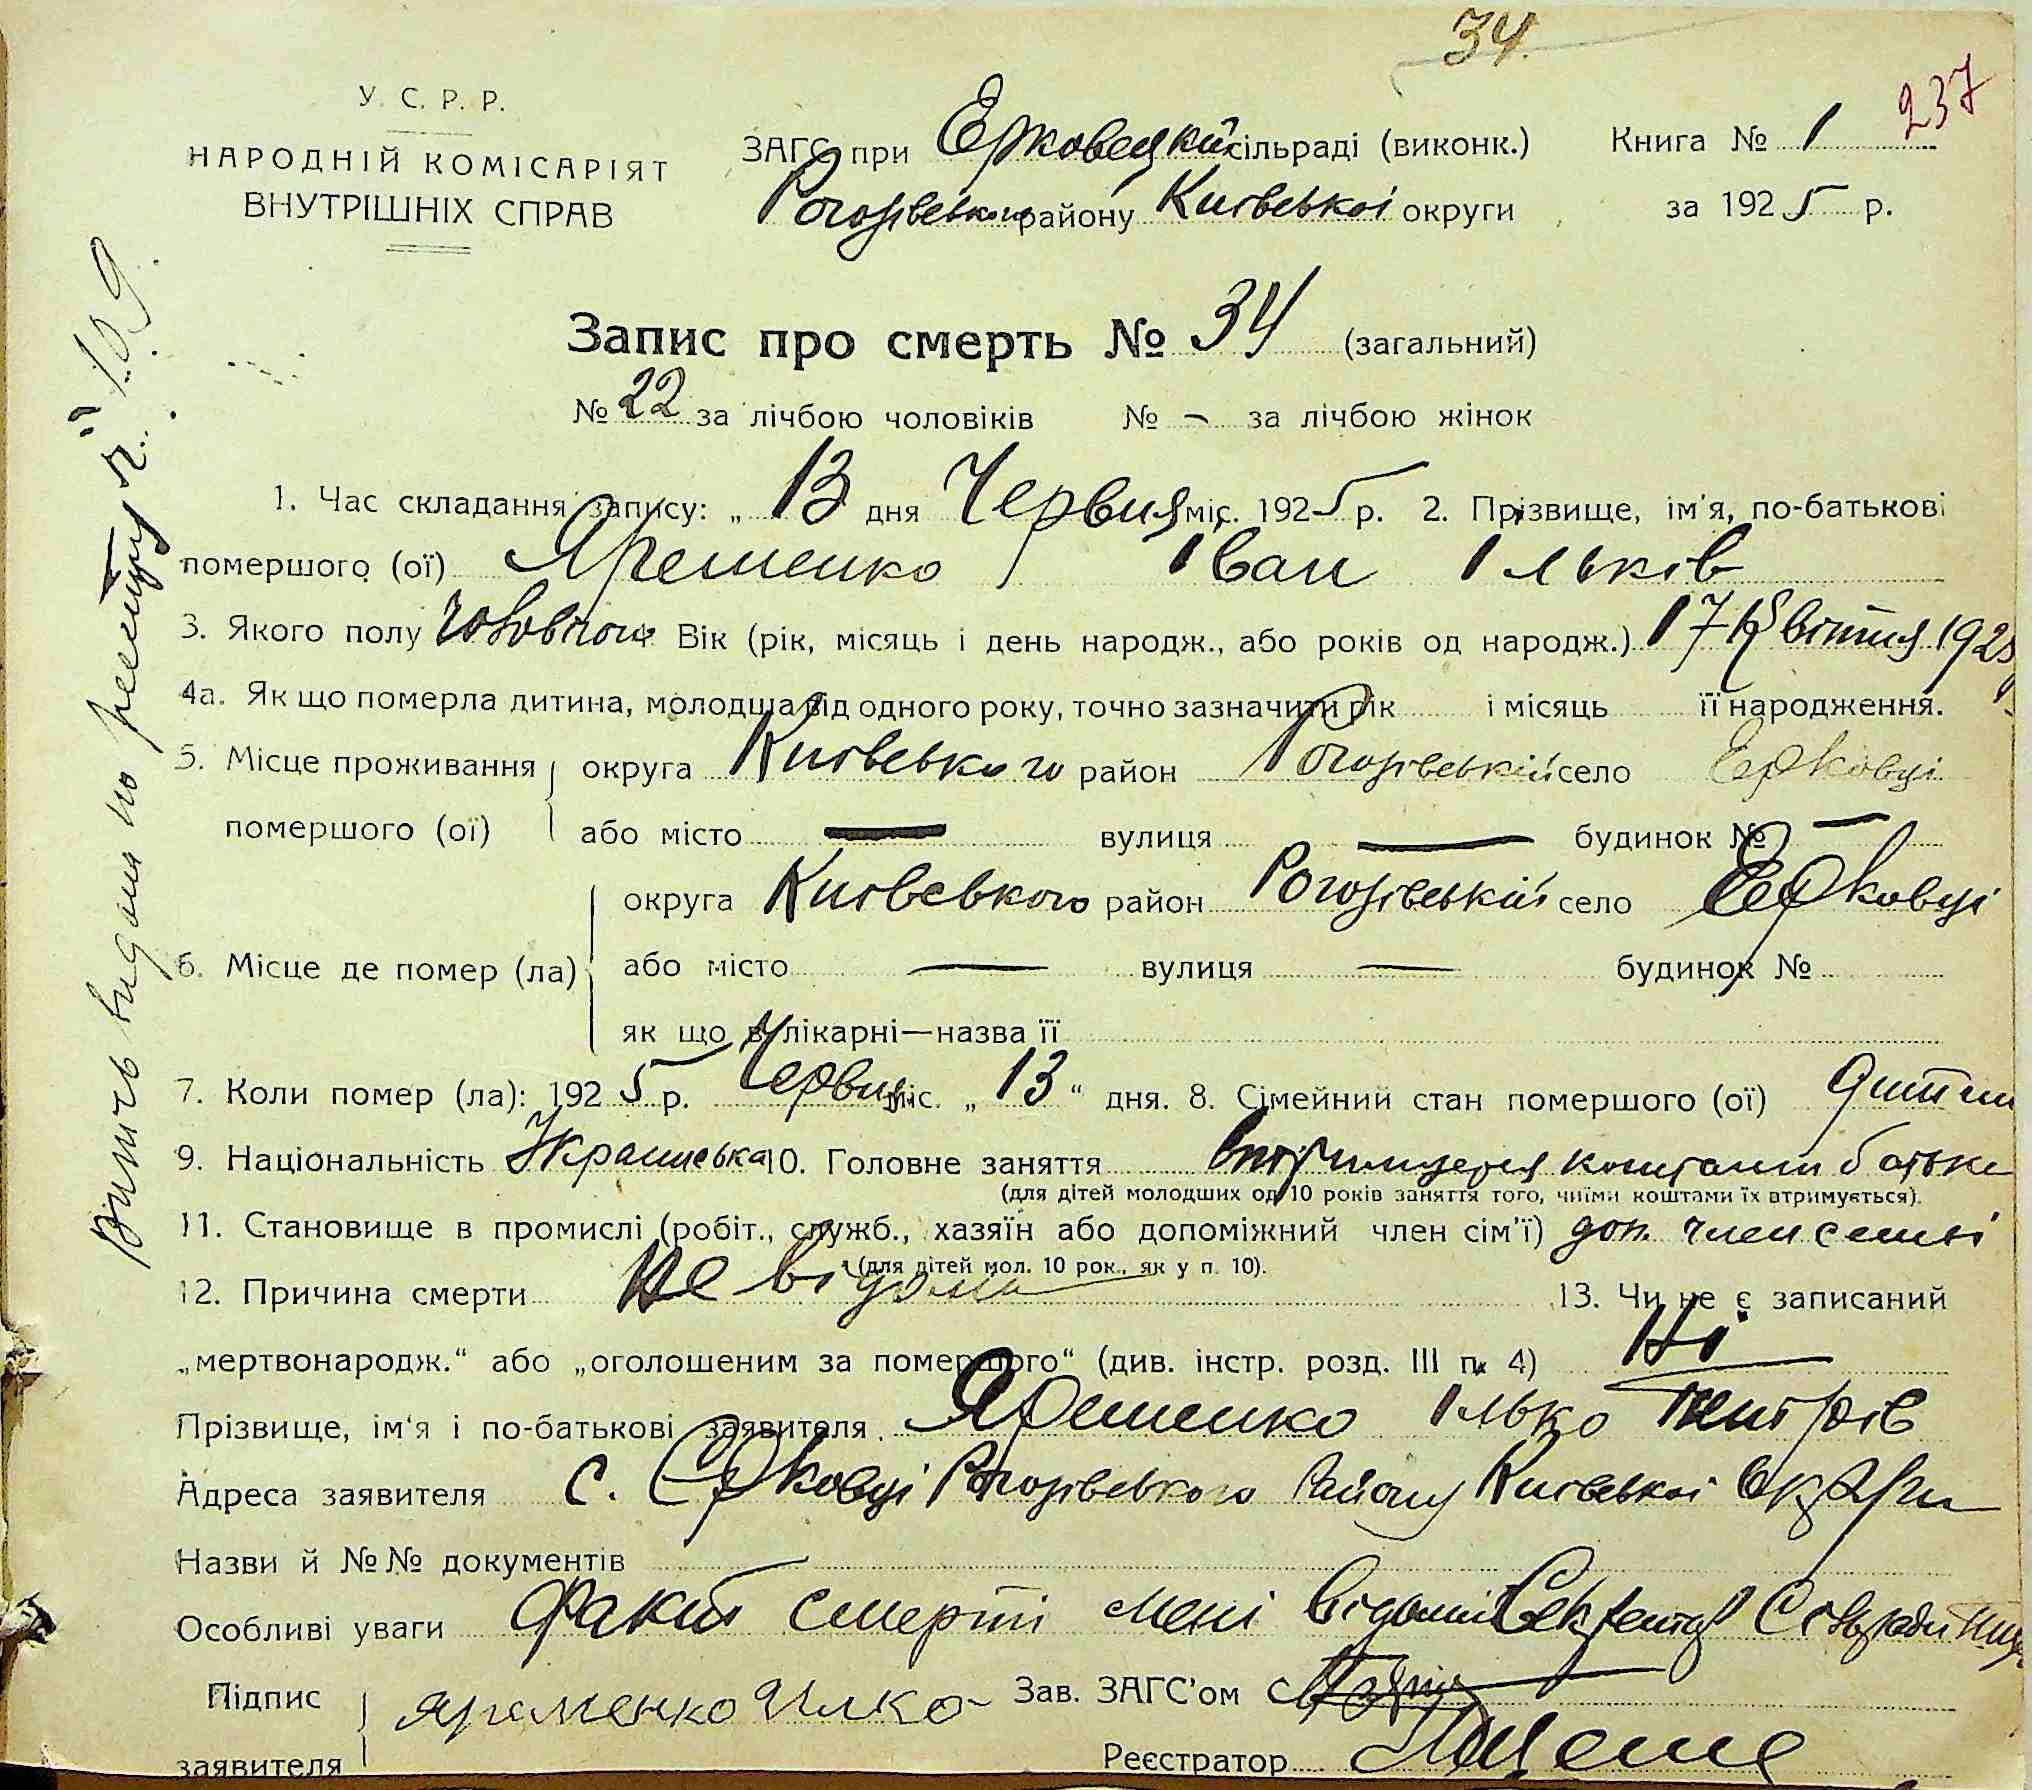 34.
237
У. С. Р. Р.
НАРОДНІЙ КОМІСАРІЯТ
ВНУТРІШНІХ СПРАВ
ЗАГС при Ерковецкій сільраді (виконк.) Книга № 1
Рогозівського району Київської округи за 1925 р.
Запис про смерть № 34 (загальний)
№ 22 за лічбою чоловіків № – за лічбою жінок
1. Час складання запису: „ 13 дня Червня міс. 1925 р. 2. Прізвище, ім'я, по-батькові
помершого (ої) Яременко Іван Ільків
3. Якого полу чоловічого 4. Вік (рік, місяць і день народж., або років од народж.) 17 Квітня 1925
4а. Як що померла дитина, молодша від одного року, точно зазначити рік і місяць її народження.
5. Місце проживання округа Київського район Рогозівський село Ерковці
помершого (ої) або місто — вулиця — будинок № —
округа Київського район Рогозівський село Ерковці
6. Місце де помер (ла) або місто — вулиця — будинок №
як що в лікарні—назва її
7. Коли помер (ла): 1925 р. Червня міс. „ 13 “ дня. 8. Сімейний стан помершого (ої)
9. Національність Українська 10. Головне заняття коштами батька
(для дітей молодших од 10 років заняття того, чиїми коштами їх втримується).
11. Становище в промислі (робіт., служб., хазяїн або допоміжний член сім'ї) доп. член семьі
(для дітей мол. 10 рок., як у п. 10).
12. Причина смерти не відома 13. Чи не є записаний
„мертвонародж.“ або „оголошеним за помершого“ (див. інстр. розд. III п. 4) Ні
Прізвище, ім'я і по-батькові заявителя Яременко Ілько
Адреса заявителя с. Ерковці Рогозівського Району Київської Округи
Назви й №№ документів
Особливі уваги Факт смерті мені відомий Секретар Сільради
Підпис заявителя Яременко Илко Зав. ЗАГС'ом
Реєстратор
Витяг видан по реєстру ч. 109